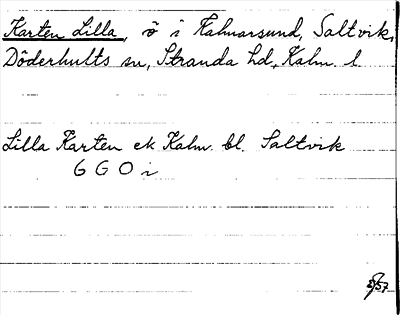 Karten Lilla, ö i Kalmarsund, Saltvik,
Döderhults sn, Stranda hd, Kalm. l
Lilla Karten ek Kalm. bl. Saltvik
6 G O i